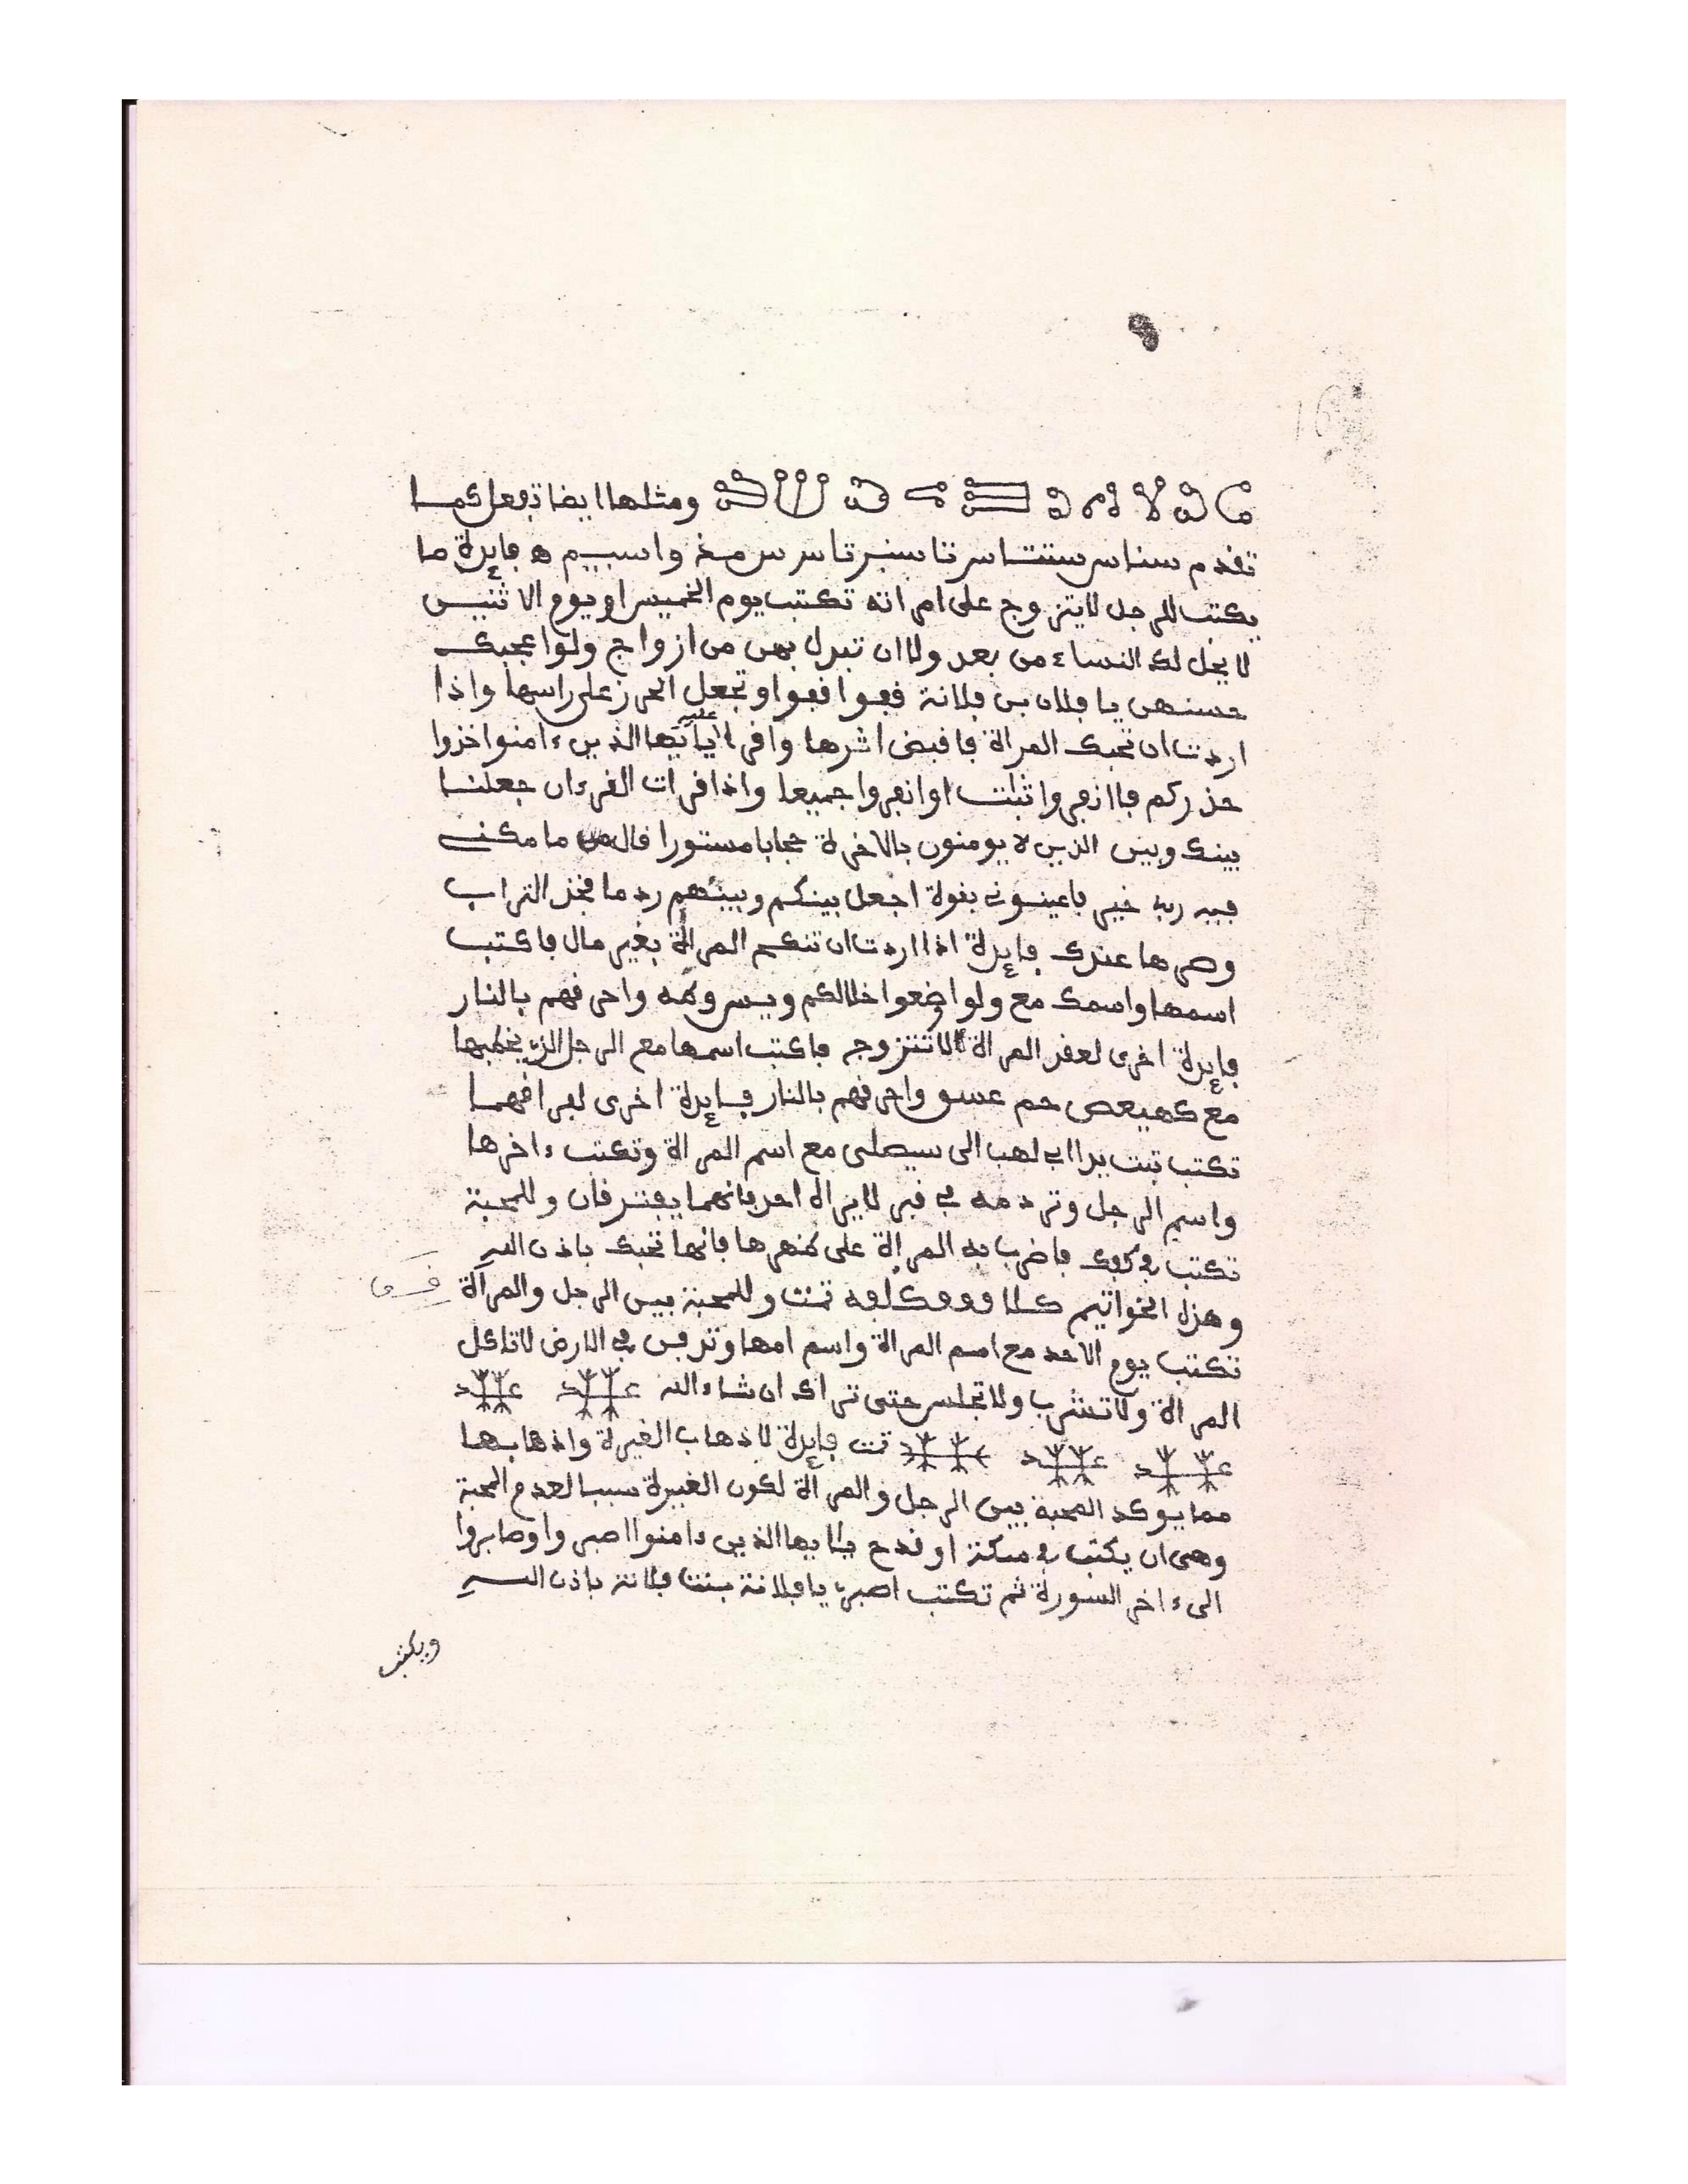 ومثلها ايضا تفعل كما
تقدم سناس ستتاس تاسنبرتاس س مذ واسييم ه فايدة ما
يكتب للرجل لا يتزوج على امراته تكتب يوم الخميس او يوم الاثنيس
لا يحل لك النساء من بعد ولا ان تبدل بهن من ازواج ولو اعجبك
حسنهن يا فلان بن فلانة قفوا قفوا وتجعل الحرز على راسها واذا
اردت ان تحبك المراة فاقبض اثرها واقرا عليه يا ايها الذين ءامنوا خذوا
حذركم فاانفروا ثبات اوانفروا جميعا واذا قرات القرءان جعلنا
بينك وبين الذين لا يومنون بالاخرة حجابا مستورا قال ما مكنے
فيه ربے خير فاعينونے بقوة اجعل بينكم وبينهم ردما فخذ التراب
وصرها عندك فايدة اذا اردت ان تنكح المراة بغير مال فاكتب
اسمها واسمك مع ولو اضعوا خلالكم واحرقهم بالنار
فايدة اخرى لعقد المراة لا تتزوج فاكتب اسمها مع الرجل الذے يخطبها
مع كهيعص حم عسق واحرقهم بالنار فايدة اخرى لفراقهما
تكتب تبت يدا ابے لهب الى سيصلى مع اسم المراة وتكتب ءاخرها
واسم الرجل وتردمه في قبر لا يراه احد فانهما يفترقان وللمحبة
تكتب في كفك فاضرب به المراة على ظهرها فانها تحبك باذن الله
وهذه الخواتيم تمت وللمحبة بين الرجل والمراة
تكتب يوم الاحد مع اسم المراة واسم امها وتدفن في الارض لا تاكل
المراة ولا تشرب ولا تجلس حتى تراك ان شاء الله
تمت فايدة لاذهاب الغيرة واذهابها
مما يوكد المحبة بين الرجل والمراة لكون الغيرة سببا لعدم المحبة
وهى ان يكتب في سكة او قدح يا ايها الذين ءامنوا اصبروا وصابروا
الىءاخر السورة ثم تكتب اصبرے يا فلانة بنت فلانة باذن الله
ويكتب